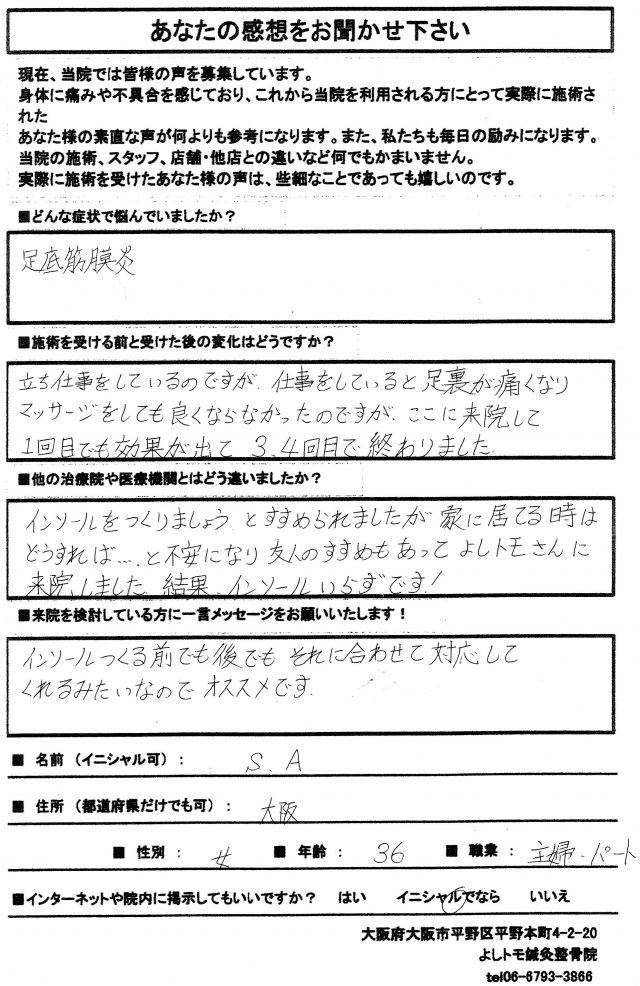 あなたの感想をお聞かせ下さい
現在、当院では皆様の声を募集しています。
身体に痛みや不具合を感じており、これから当院を利用される方にとって実際に施術さ
れた
あなた様の素直な声が何よりも参考になります。また、私たちも毎日の励みになります。
当院の施術、スタッフ、店舗・他店との違いなど何でもかまいません。
実際に施術を受けたあなた様の声は、些細なことであっても嬉しいのです。
■どんな症状で悩んでいましたか？
足底筋膜炎
■施術を受ける前と受けた後の変化はどうですか？
立ち仕事をしているのですが、仕事をしていると足裏が痛くなり
マッサージをしても良くならなかったのですが、ここに来院して
1回目でも効果が出て 3、4回目で終わりました
■他の治療院や医療機関とはどう違いましたか？
インソールをつくりましょう とすすめられましたが 家に居てる時は
どうすれば…、と不安になり 友人のすすめもあって よしトモさんに
来院しました 結果、インソールいらずです！
■来院を検討している方に一言メッセージをお願いいたします！
インソールつくる前でも後でも それに合わせて対応して
くれるみたいなので オススメです。
■ 名前（イニシャル可）： S.A
■ 住所（都道府県だけでも可）： 大阪
■ 性別： 女 ■ 年齢： 36 ■ 職業： 主婦・パート
■インターネットや院内に掲示してもいいですか？ はい イニシャルでなら いいえ
大阪府大阪市平野区平野本町4-2-20
よしトモ鍼灸整骨院
tel06-6793-3866